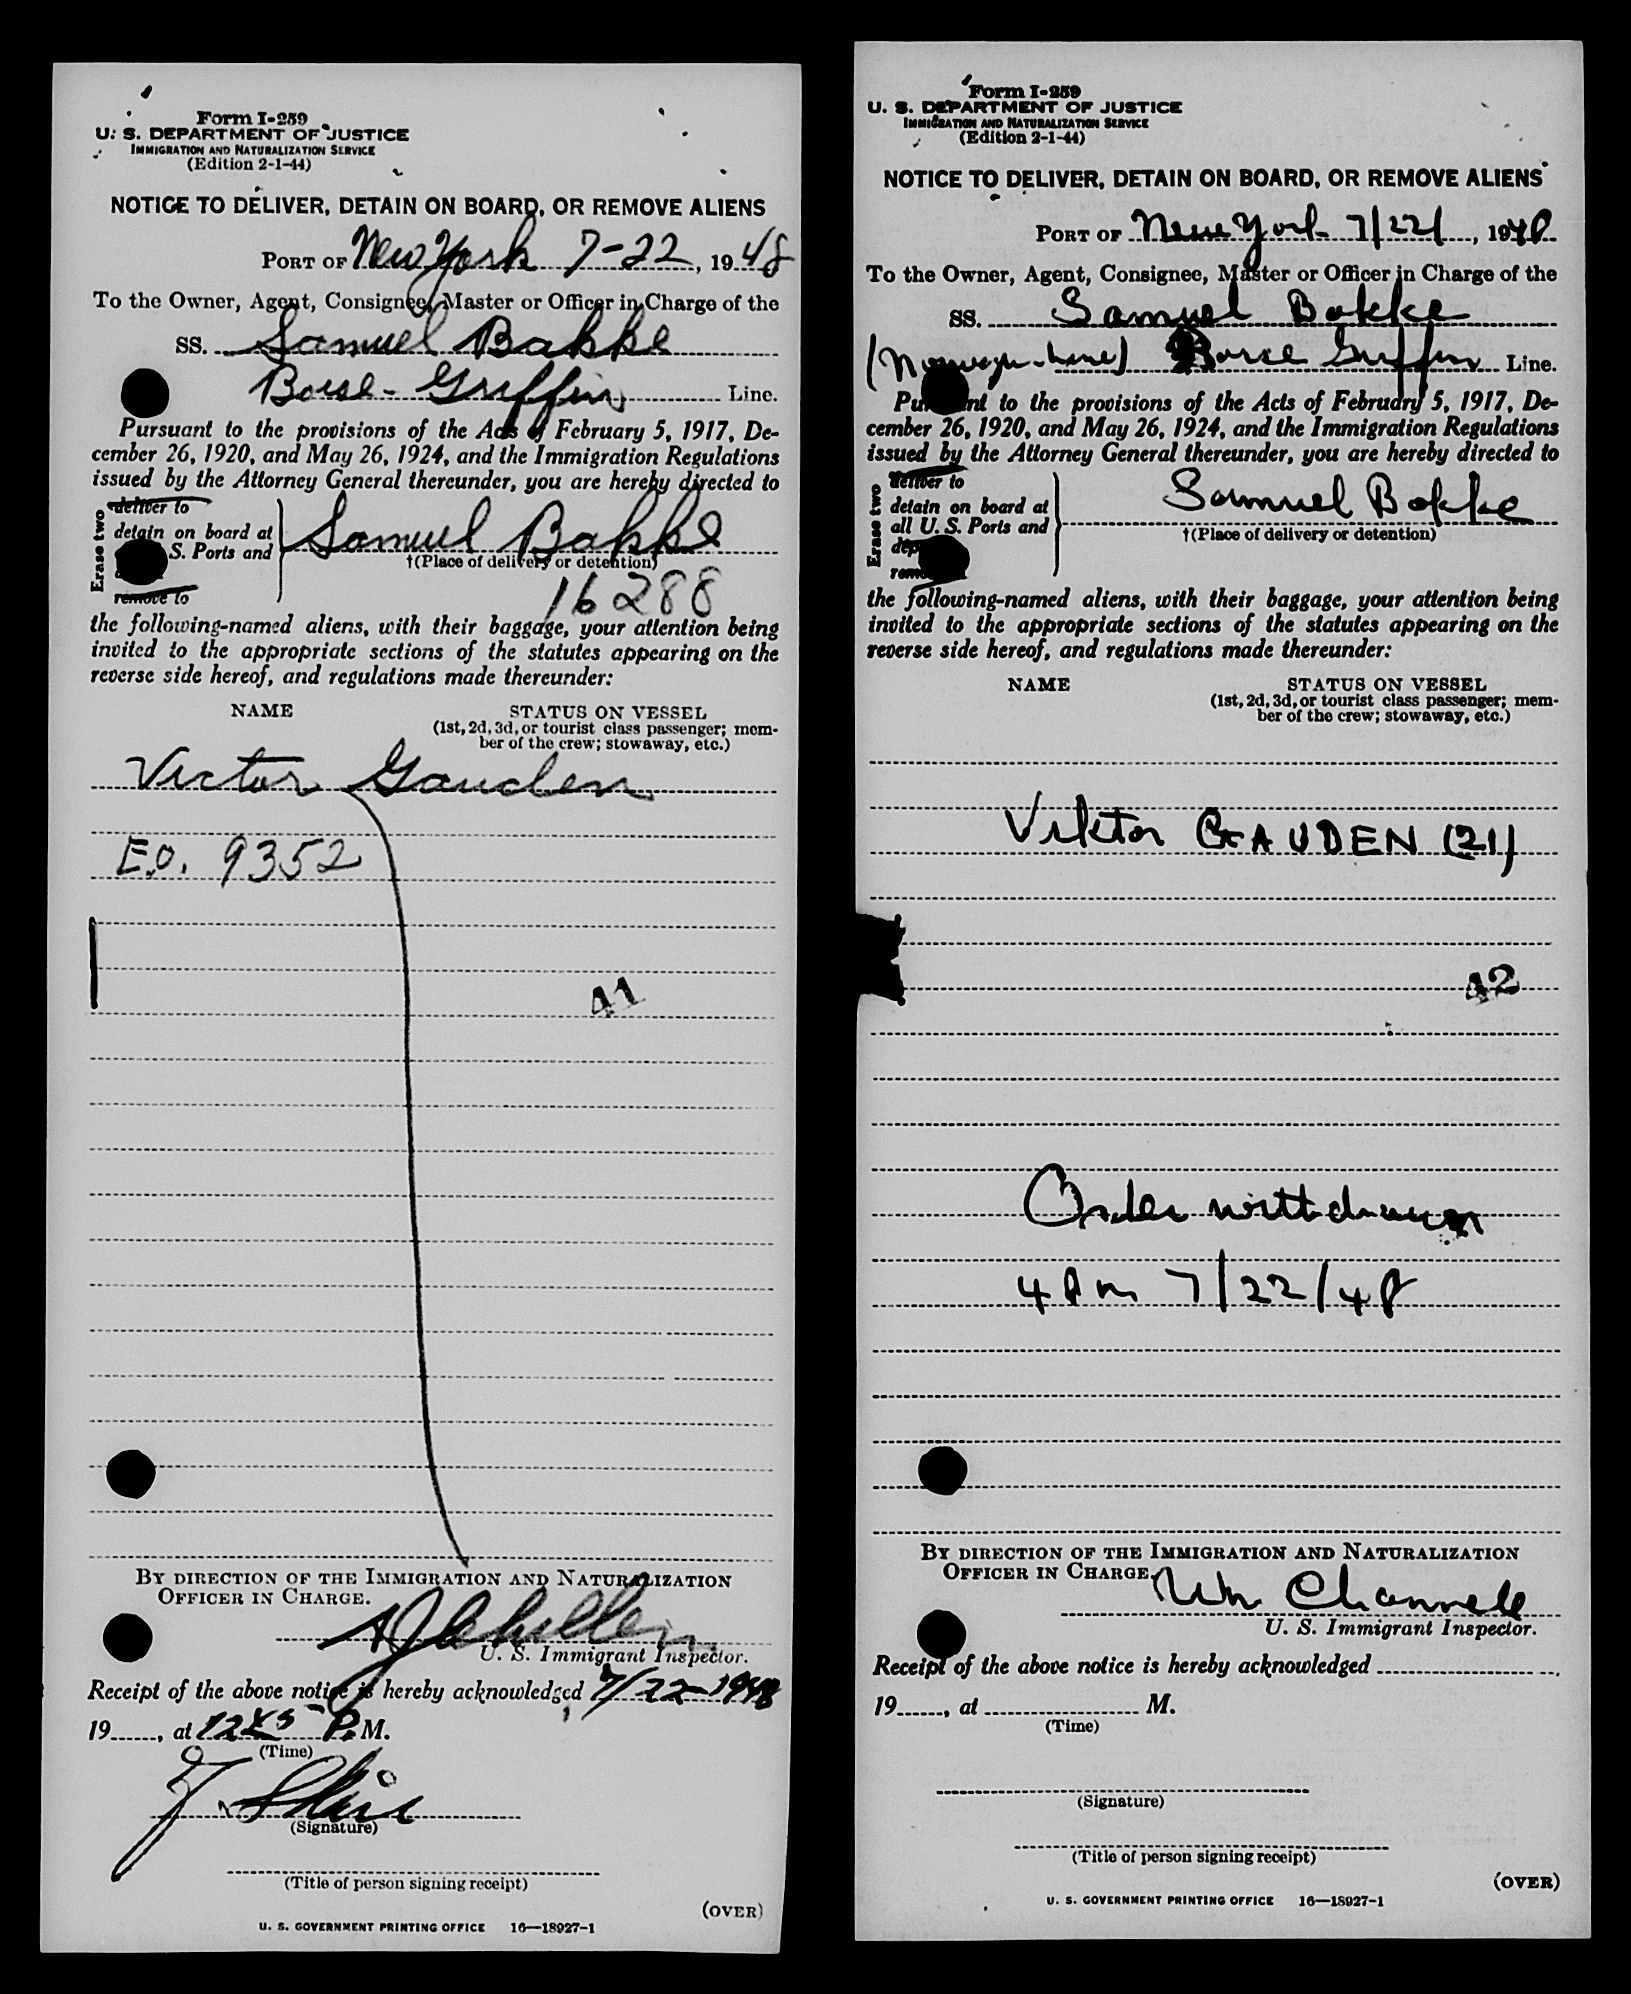 Form I-259
U. S. DEPARTMENT OF JUSTICE
IMMIGRATION AND NATURALIZATION SERVICE
(Edition 2-1-44)
NOTICE TO DELIVER, DETAIN ON BOARD, OR REMOVE ALIENS
PORT OF New York 7-22, 1948
To the Owner, Agent, Consignee, Master or Officer in Charge of the
SS. Samuel Bakke
Boise-Griffin Line.
Pursuant to the provisions of the Acts of February 5, 1917, De-
cember 26, 1920, and May 26, 1924, and the Immigration Regulations
issued by the Attorney General thereunder, you are hereby directed to
Erase two
deliver to
detain on board at
S. Ports and
remove to
Samuel Bakke
†(Place of delivery or detention)
16288
the following-named aliens, with their baggage, your attention being
invited to the appropriate sections of the statutes appearing on the
reverse side hereof, and regulations made thereunder:
NAME STATUS ON VESSEL
(1st, 2d, 3d, or tourist class passenger; mem-
ber of the crew; stowaway, etc.)
Victor Gauden
E.O. 9352
41
BY DIRECTION OF THE IMMIGRATION AND NATURALIZATION
OFFICER IN CHARGE.
U. S. Immigrant Inspector.
Receipt of the above notice is hereby acknowledged 7/22-1948
19......, at 1245 P.M.
(Time)
(Signature)
(Title of person signing receipt)
(OVER)
U. S. GOVERNMENT PRINTING OFFICE 16—18927-1
Form I-259
U. S. DEPARTMENT OF JUSTICE
IMMIGRATION AND NATURALIZATION SERVICE
(Edition 2-1-44)
NOTICE TO DELIVER, DETAIN ON BOARD, OR REMOVE ALIENS
PORT OF New York 7/22/, 1948
To the Owner, Agent, Consignee, Master or Officer in Charge of the
SS. Samuel Bakke
Line) Boise Griffin Line.
Pursuant to the provisions of the Acts of February 5, 1917, De-
cember 26, 1920, and May 26, 1924, and the Immigration Regulations
issued by the Attorney General thereunder, you are hereby directed to
Erase two
deliver to
detain on board at
all U. S. Ports and
Samuel Bakke
†(Place of delivery or detention)
the following-named aliens, with their baggage, your attention being
invited to the appropriate sections of the statutes appearing on the
reverse side hereof, and regulations made thereunder:
NAME STATUS ON VESSEL
(1st, 2d, 3d, or tourist class passenger; mem-
ber of the crew; stowaway, etc.)
Viktor GAUDEN (21)
42
Order withdrawn
4 Pm 7/22/48
BY DIRECTION OF THE IMMIGRATION AND NATURALIZATION
OFFICER IN CHARGE.
Wm Channell
U. S. Immigrant Inspector.
Receipt of the above notice is hereby acknowledged
19......, at M.
(Time)
(Signature)
(Title of person signing receipt)
(OVER)
U. S. GOVERNMENT PRINTING OFFICE 16—18927-1